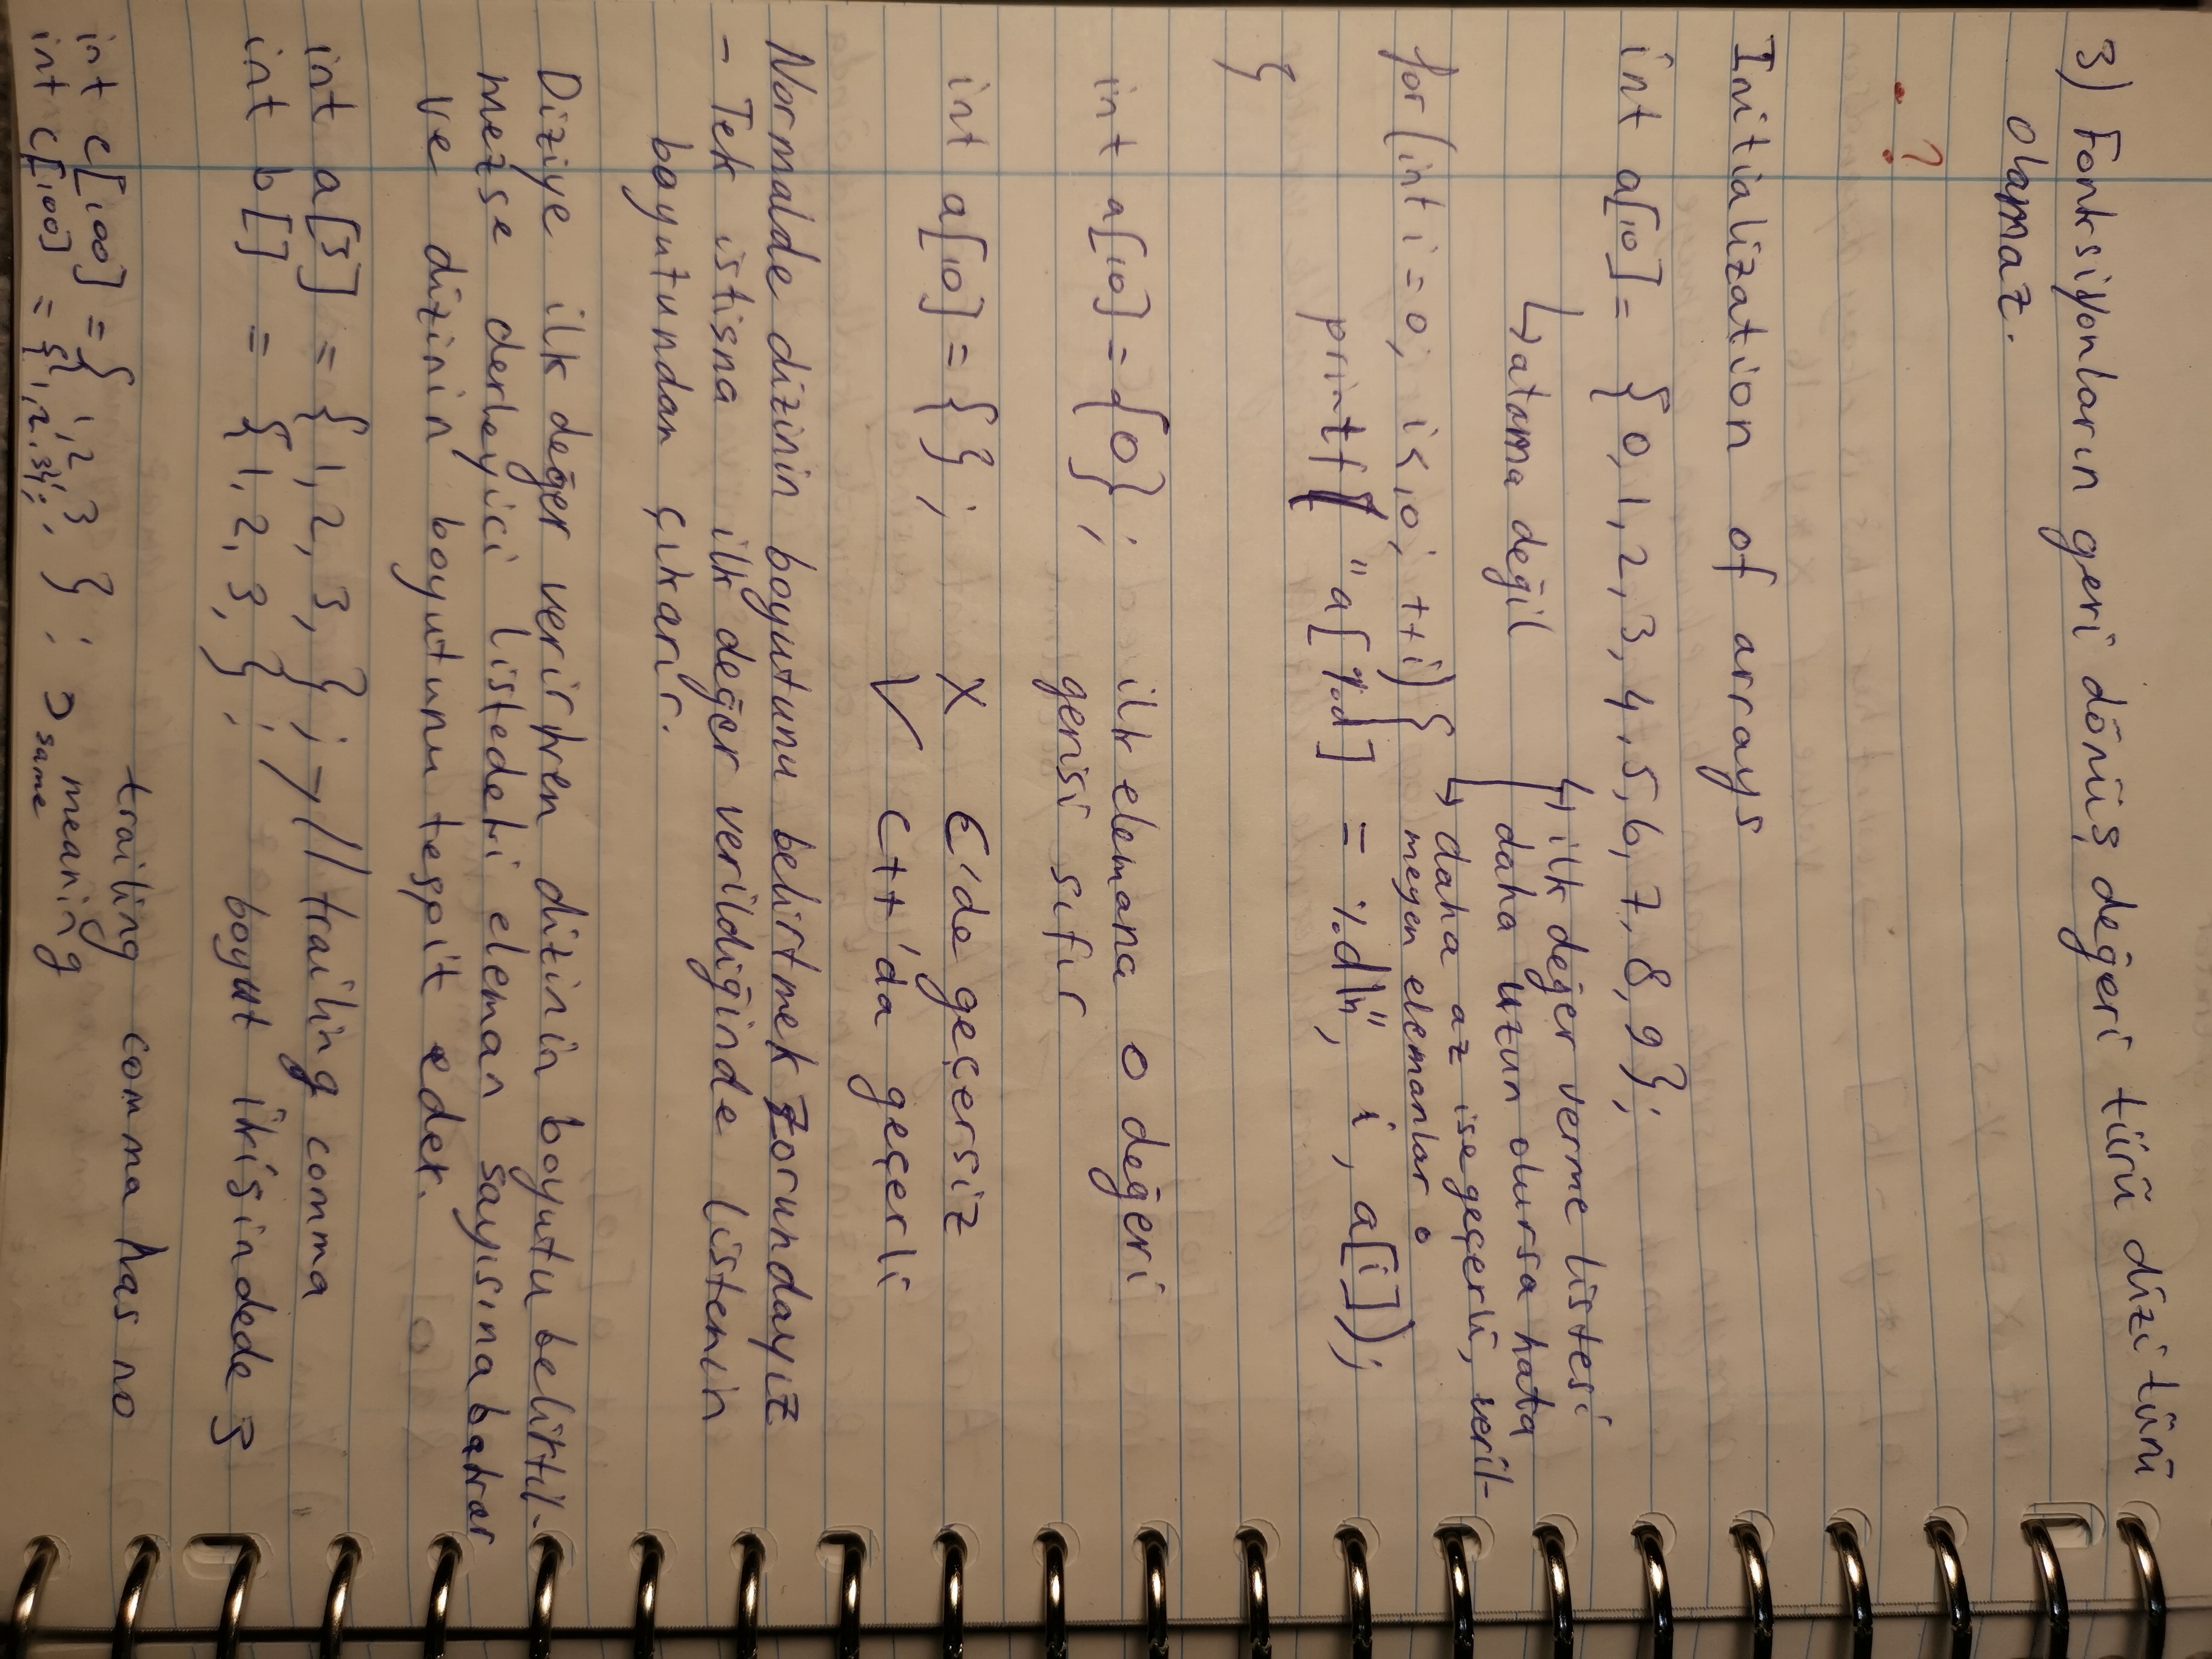 3) Fonksiyonların geri dönüş değeri türü dizi türü
olamaz.
- ?
Initialization of arrays
int a[10] = {0, 1, 2, 3, 4, 5, 6, 7, 8, 9};
↳ atama değil
↳ ilk değer verme listesi
daha uzun olursa hata
↳ daha az ise geçerli, veril-
meyen elemanlar 0
for (int i = 0; i < 10; ++i) {
printf( "a[%d] = %d\n", i, a[i]);
}
int a[10] = {0}; ilk elemana 0 değeri
gerisi sıfır
int a[10] = { }; X C'de geçersiz
✓ C++'da geçerli
Normalde dizinin boyutunu belirtmek zorundayız
- Tek istisna ilk değer verildiğinde listenin
boyutundan çıkarır.
Diziye ilk değer verirken dizinin boyutu belirtil-
mezse derleyici listedeki eleman sayısına bakar
ve dizinin boyutunu tespit eder.
int a[3] = {1, 2, 3, }; → // trailing comma
int b[] = {1, 2, 3, }; boyut ikisindede 3
trailing comma has no
meaning
int c[100] = { 1, 2, 3, };
int c[100] = {1, 2, 3}; same